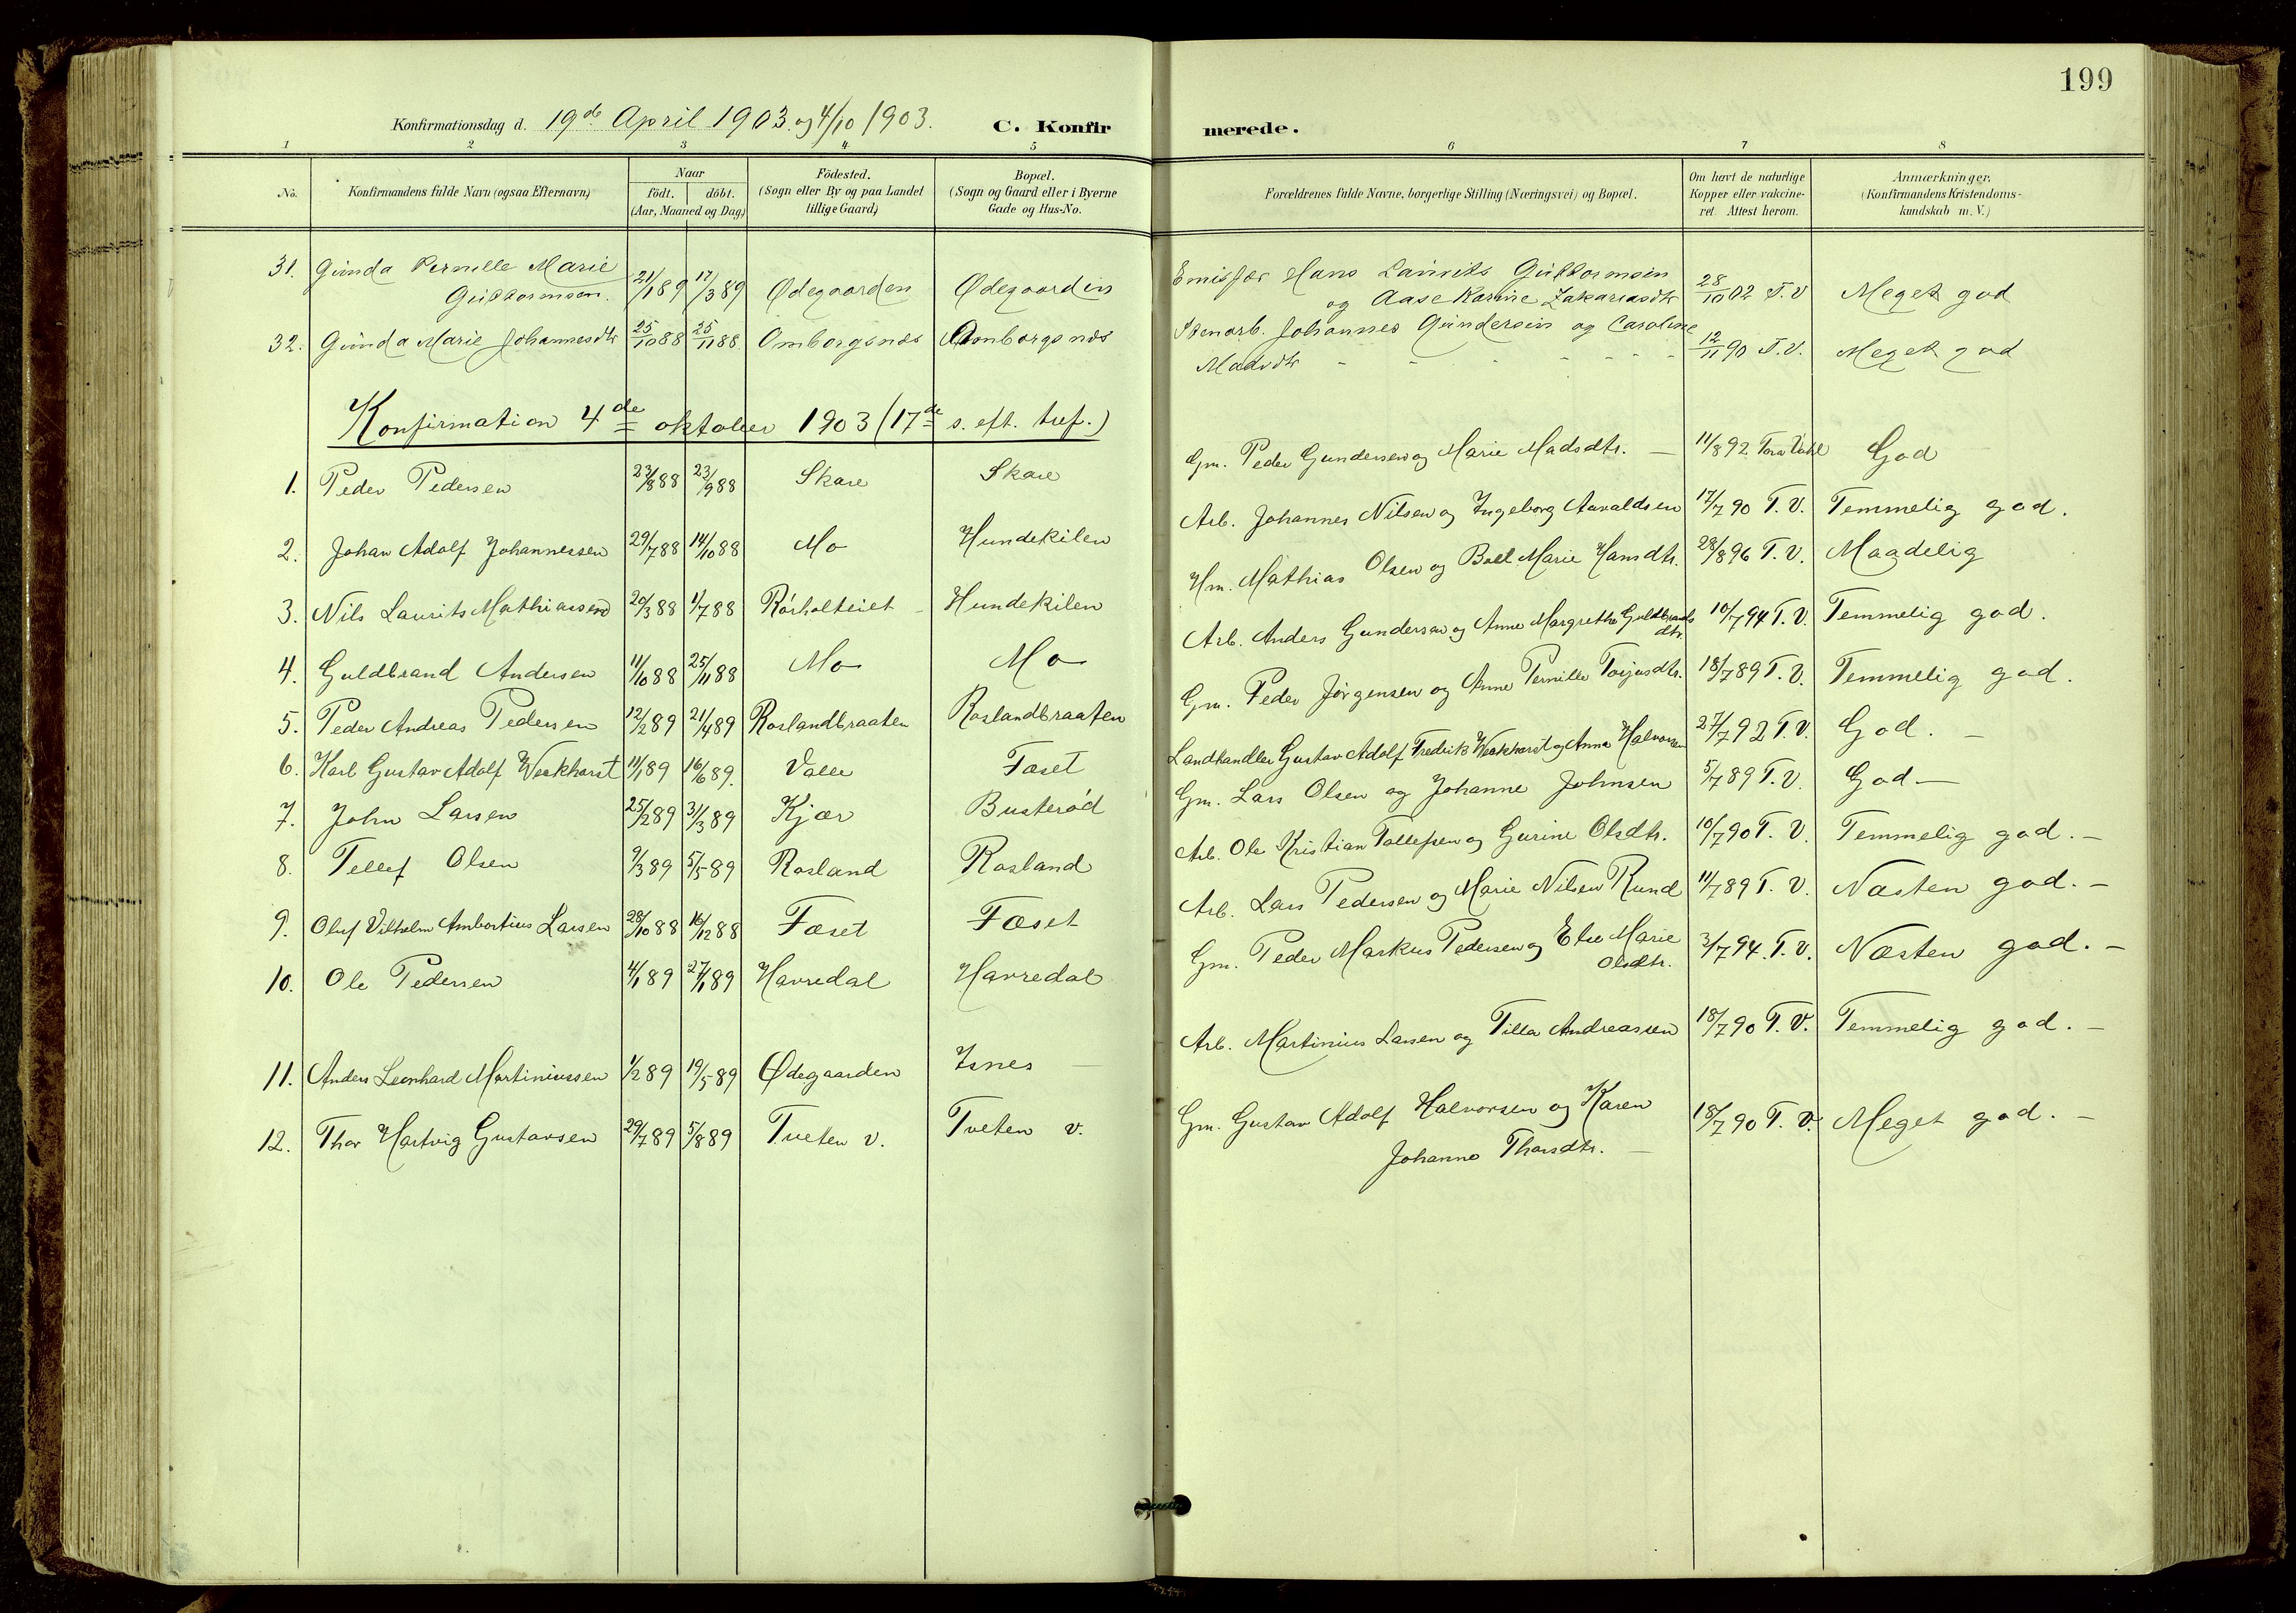 199
Konfirmationsdag d. 19de April 1903. og 4/10 1903. C. Konfir merede.
1 2 3 4 5 6 7 8
No. Konfirmandens fulde Navn (ogsaa Efternavn) Naar födt. döbt. (Aar, Maaned og Dag) Födested. (Sogn eller By og paa Landet tillige Gaard) Bopæl. (Sogn og Gaard eller i Byerne Gade og Hus-No. Forældrenes fulde Navne, borgerlige Stilling (Næringsvei) og Bopæl. Om havt de naturlige Kopper eller vakcineret. Attest herom. Anmærkninger. (Konfirmandens Kristendomskundskab m. V.)
31. Gunda Pernille Marie Guttormsen. 21/1 89 17/3 89 Ødegaarden Ødegaarden Emisjær Hans Laurits Guttormsen og Aase Karine Zakariasdtr 28/10 02 T.V Meget god
32. Gunda Marie Johannesdtr 25/10 88 25/11 88 Omborgsnes Omborgsnes Stenarb. Johannes Gundersen og Caroline Madsdtr - - - - - - 12/11 90 T.V. Meget god
Konfirmation 4de oktober 1903 (17de s. eft. tref.)
1. Peder Pedersen 23/8 88 23/9 88 Skare Skare Gm. Peder Gundersen og Marie Madsdtr. — 11/8 92 Tora Vahl God
2. Johan Adolf Johannessen 29/7 88 14/10 88 Mo Hundekilen Arb. Johannes Nilsen og Ingeborg Aavaldsen 17/7 90 T.V. Temmelig god.
3. Nils Laurits Mathiassen 20/3 88 1/7 88 Rørholteiet Hundekilen Hm. Mathias Olsen og Boel Marie Hansdtr. 28/8 96 T.V. Maadelig
4. Guldbrand Andersen 11/10 88 25/11 88 Mo Mo Arb. Anders Gundersen og Anne Margrethe Guldbrandsdtr. 10/7 94 T.V. Temmelig god.
5. Peder Andreas Pedersen 12/2 89 21/4 89 Roslandbraaten Roslandbraaten Gm. Peder Jørgensen og Anne Pernille Torjusdtr. 18/7 89 T.V. Temmelig god.
6. Karl Gustav Adolf Werkhorst 11/1 89 16/6 89. Valle Foset Landhandler Gustav Adolf Fredrik Werkhorst og Anna Halvorsen 27/7 92 T.V. God. —
7. John Larsen 25/2 89 31/3 89 Kjær Busterød Gm. Lars Olsen og Johanne Johnsen 5/7 89 T.V. God —
8. Tellef Olsen 9/3 89 5/5 89 Rosland Rosland Arb. Ole Kristian Tollefsen og Gurine Olsdtr. 10/7 90 T.V. Temmelig god. —
9. Oluf Vilhelm Ambortius Larsen 28/10 88 16/12 88 Foset Foset Arb. Lars Pedersen og Marie Nilsen Rund 11/7 89 T.V. Næsten god. —
10. Ole Pedersen 4/1 89 27/1 89 Havredal Havredal Gm. Peder Markus Pedersen og Else Marie Olsdtr. 3/7 94. T.V. Næsten god. —
11. Anders Leonhard Martiniussen 1/2 89 19/5 89 Ødegaarden Isnes — Arb. Martinius Larsen og Tilla Andreassen 18/7 90 T.V. Temmelig god. —
12. Thor Hartvig Gustavsen 29/7 89 5/8 89 Tveten v. Tveten v. Gm. Gustav Adolf Halvorsen og Karen Johanne Thorsdtr. — 18/7 90 T.V. Meget god. —